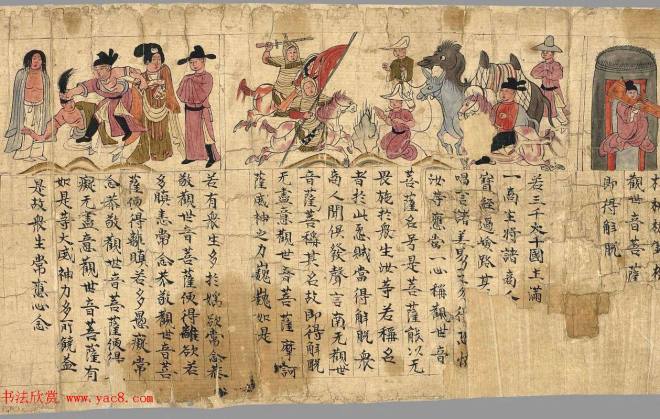 觀世音菩薩
即得解脫
若三千大千國土滿
一商主將諸商人
寶經過嶮路其
唱言諸善男子勿得恐怖
汝等應當一心稱觀世音
菩薩名号是菩薩能以无
畏施於衆生汝等若稱名
者於此怨賊當得解脫衆
商人聞俱發聲言南无觀世
音菩薩稱其名故即得解脫
无盡意觀世音菩薩摩訶
薩威神之力巍巍如是
若有衆生多於婬欲常念恭
敬觀世音菩薩便得離欲若
多瞋恚常念恭敬觀世音菩
薩便得離瞋若多愚癡常
念恭敬觀世音菩薩便得
癡无盡意觀世音菩薩有
如是等大威神力多所饒益
是故衆生常應心念
书法欣赏 www.yac8.com